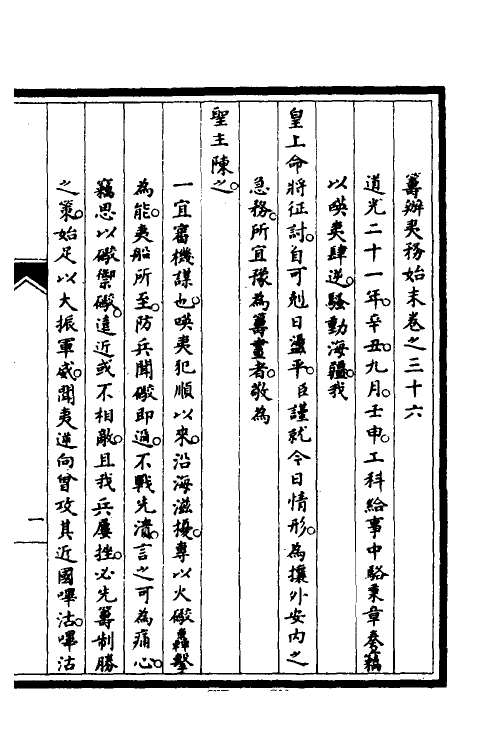 籌辦夷務始末卷之三十六
道光二十一年。辛丑。九月。壬申。工科給事中駱秉章奏。竊
以㗸夷肆逆。騷動海疆。我
皇上命將征討。自可剋日盪平。臣謹就今日情形。為攘外安內之
急務。所宜豫為籌畫者。敬為
聖主陳之。
一宜審機謀也。㗸夷犯順以來。沿海滋擾。專以火礮轟擊
為能。夷船所至。防兵聞礮即過。不戰先潰。言之可為痛心。
竊思以礮禦礮。遠近或不相敵。且我兵屢挫。必先籌制勝
之策。始足以大振軍威。聞夷逆向曾攻其近國嗶沽。嗶沽
一